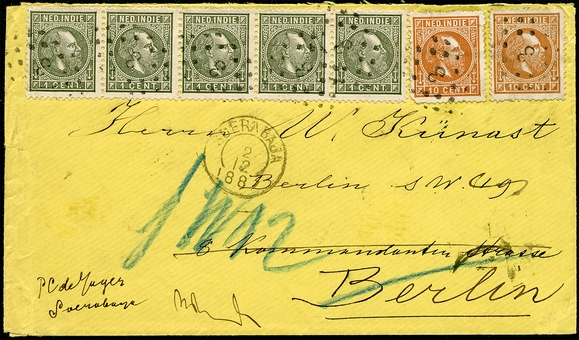 NED. INDIE NED. INDIE NED. INDIE NED. INDIE NED. INDIE NED. INDIE
1 CENT. 1 CENT. 1 CENT. 1 CENT. 1 CENT. 10 CENT 10 CENT
Herrn W. Künast
SOERABAJA
2
12
188
Berlin S W. 49
8 Kommandanten Strasse
Berlin
P C de Jager
Soerabaya